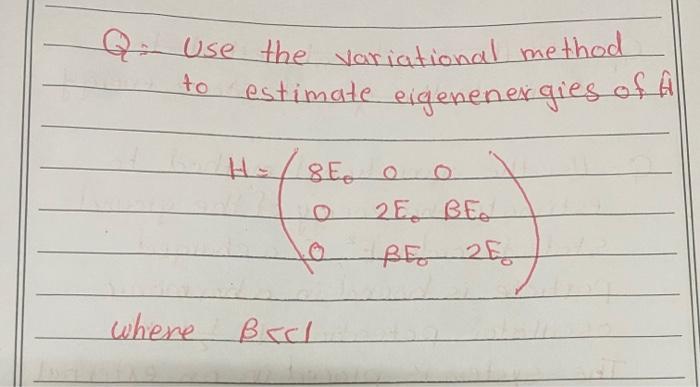 Q:- Use the variational method
to estimate eigenenergies of Ĥ
H = ( 8E₀ 0 0
0 2E₀ βE₀
0 βE₀ 2E₀ )
where β<<1